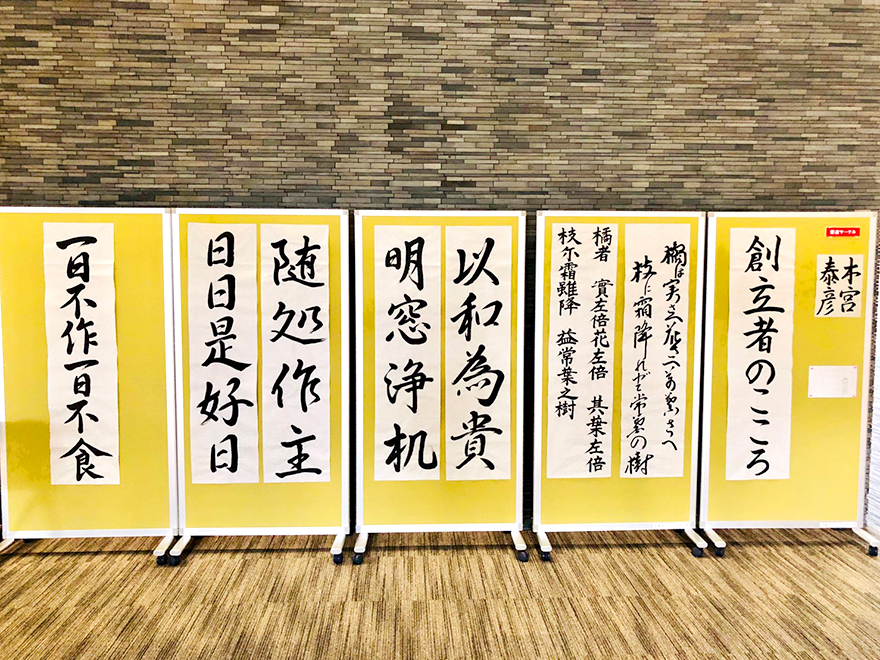 書道サークル
木宮
泰彦
創立者のこころ
橘は実さへ花さへその葉さへ
枝に霜降れど常葉の樹
橘者 實左倍花左倍 其葉左倍
枝尓霜雖降 益常葉之樹
以和為貴
明窓浄机
随処作主
日日是好日
一日不作一日不食